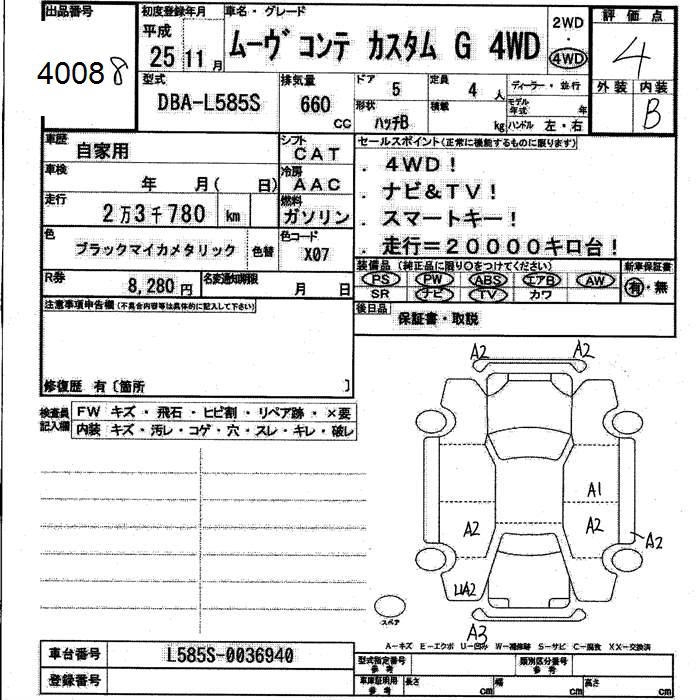 出品番号 初度登録年月 車名・グレード 評価点
平成 25 11月 ムーヴ コンテ カスタム G 4WD 2WD・4WD 4
40088 外装 内装 B
型式 DBA-L585S 排気量 660 CC ドア 5 定員 4 人 ディーラー・並行
形状 ハッチB 積載 kg モデル年式 年 ハンドル 左・右
車歴 自家用 シフト CAT セールスポイント(正常に機能するものに限ります)
車検 年 月( 日) 冷房 AAC . 4WD!
走行 2万3千780 km 燃料 ガソリン . ナビ&TV!
. スマートキー!
色 ブラックマイカメタリック 色替 色コード X07 . 走行=20000キロ台!
R券 8,280円 名変通知期限 月 日 装備品 (純正品に限り○をつけてください) 新車保証書
PS PW ABS エアB AW 有・無
SR ナビ TV カワ
注意事項申告欄(不具合内容等は具体的に記入して下さい) 後日品 保証書・取説
修復歴 有〔箇所 〕
検査員記入欄 FW キズ・飛石・ヒビ割・リペア跡・×要
内装 キズ・汚レ・コゲ・穴・スレ・キレ・破レ
A2 A2
A1
A2 A2 A2
UA2
スペア
A3
A-キズ E-エクボ U-凹み W-補修跡 S-サビ C-腐食 XX-交換済
車台番号 L585S-0036940 型式指定番号 参考 類別区分番号 参考
登録番号 車庫証明用 参考 長さ cm 幅 cm 高さ cm